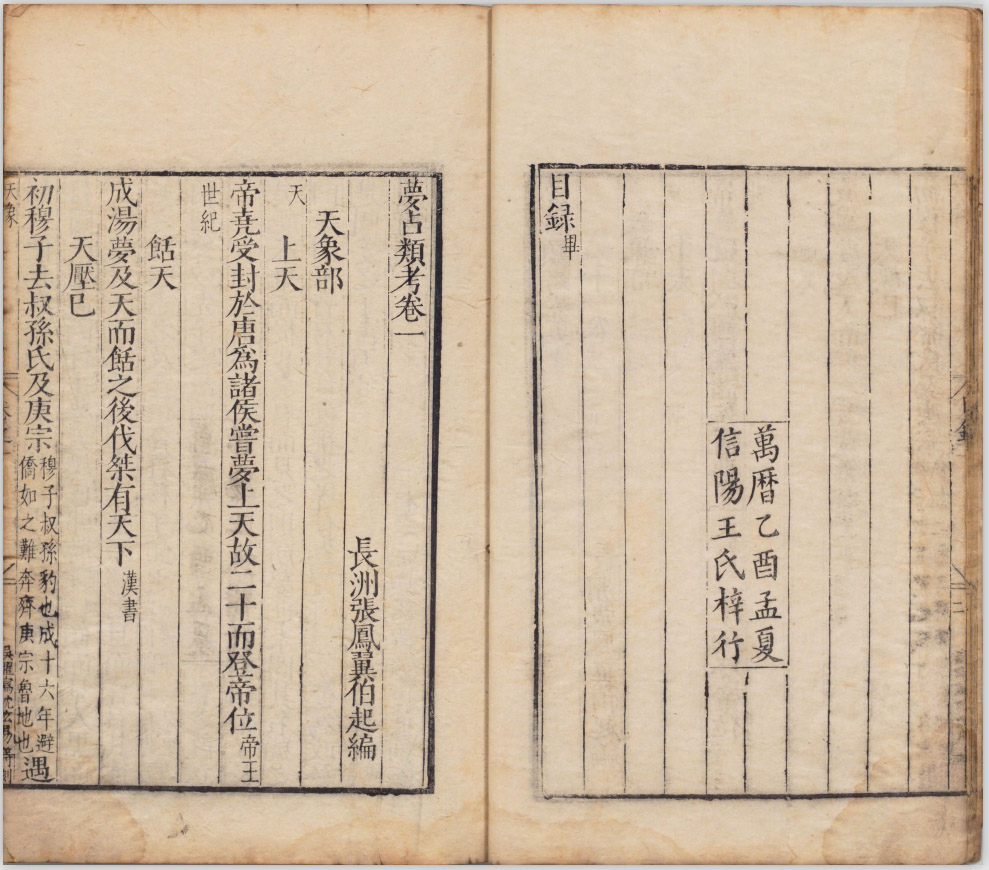 目録畢
萬暦乙酉孟夏
信陽王氏梓行
夢占類考卷一
長洲張鳳翼伯起編
天象部
天
上天
帝堯受封於唐為諸侯嘗夢上天故二十而登帝位帝王
世紀
餂天
成湯夢及天而餂之後伐桀有天下漢書
天壓已
初穆子去叔孫氏及庚宗穆子叔孫豹也成十六年避
僑如之難奔齊庚宗魯地也遇
天象